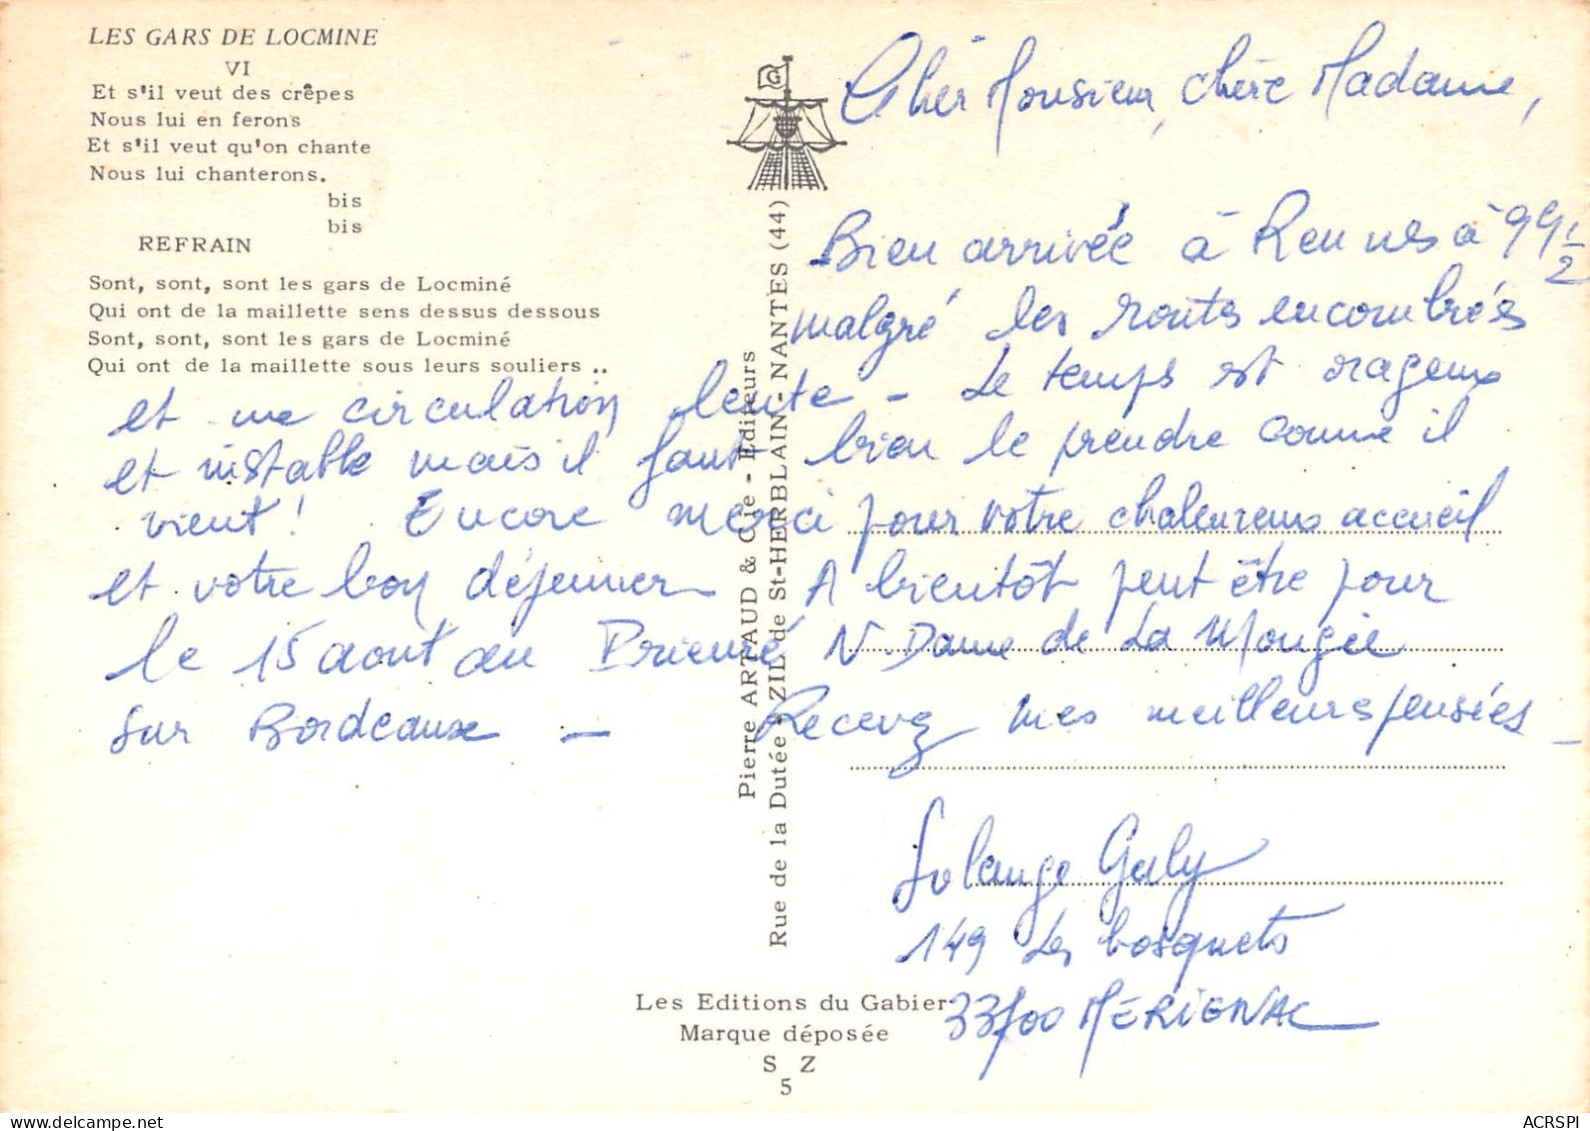 LES GARS DE LOCMINE
VI
Et s'il veut des crêpes
Nous lui en ferons
Et s'il veut qu'on chante
Nous lui chanterons.
bis
bis
REFRAIN
Sont, sont, sont les gars de Locminé
Qui ont de la maillette sens dessus dessous
Sont, sont, sont les gars de Locminé
Qui ont de la maillette sous leurs souliers ..
G
Pierre ARTAUD & Cie - Editeurs
Rue de la Dutée - ZIL de St-HERBLAIN - NANTES (44)
Cher Monsieur, chère Madame,
Bien arrivée à Rennes à
malgré les routes encombrées
et une circulation lente - Le temps est orageux
et instable mais il faut bien le prendre comme il
vient ! Encore merci pour votre chaleureux accueil
et votre bon déjeuner. A bientôt peut être pour
le 15 aout au Prieuré N. Dame de La
sur Bordeaux - Recevez mes meilleures pensées -
Solange Galy
149 Les bosquets
33700 MERIGNAC
Les Editions du Gabier
Marque déposée
S Z
5
ACRSPI